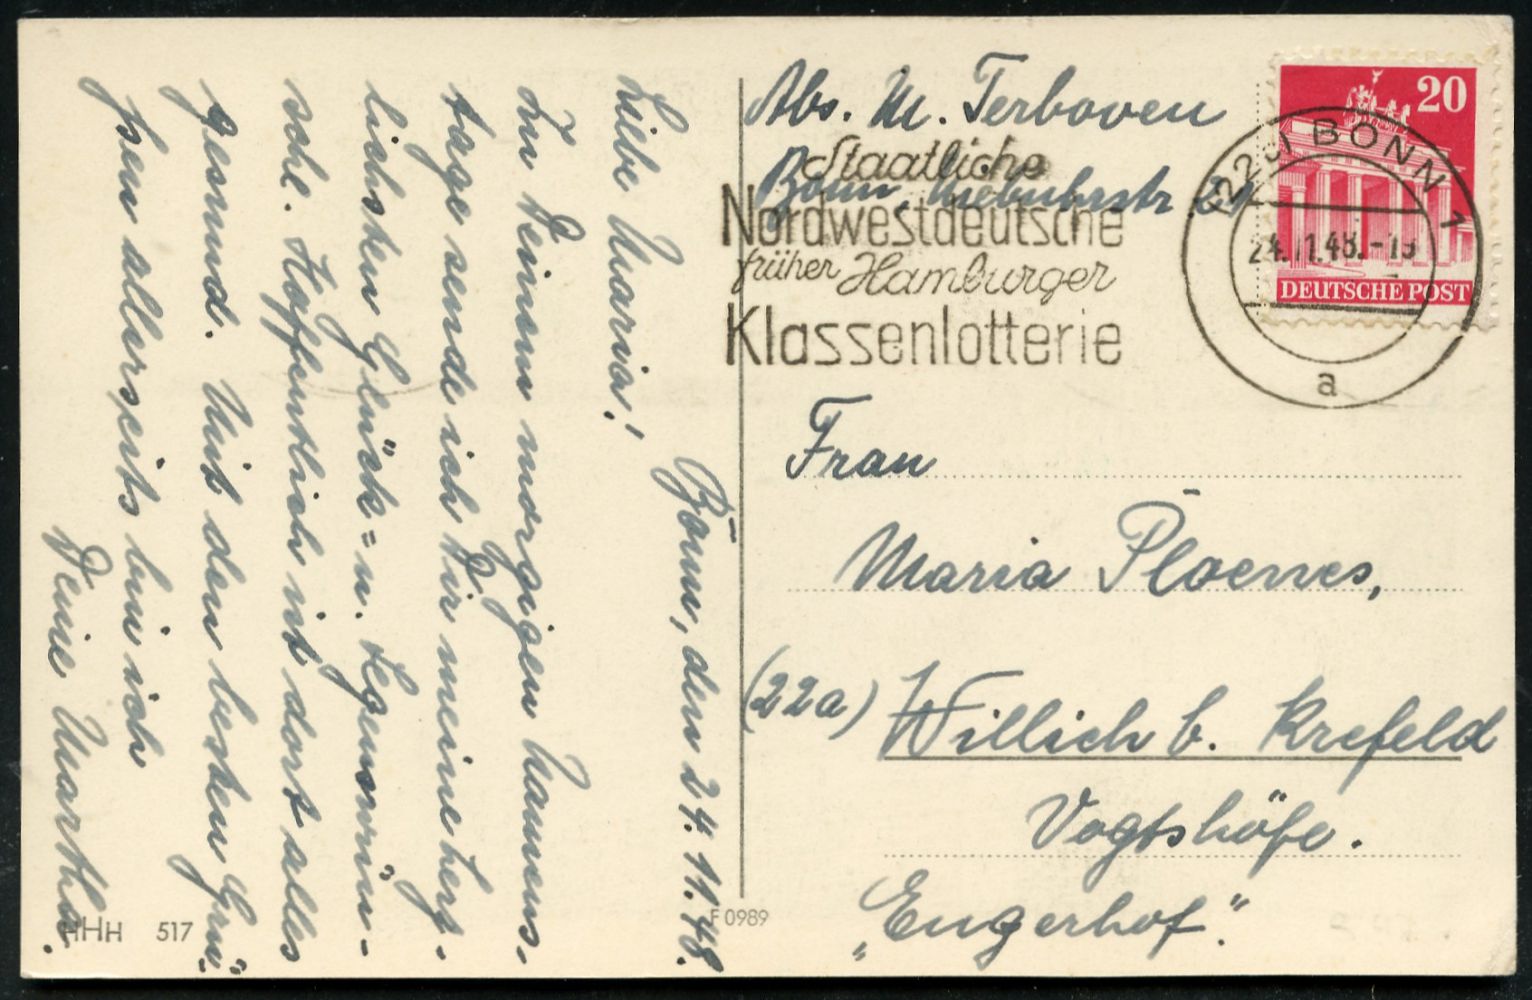 Bonn, den 24.11.48.
Liebe Maria!
Zu Deinem morgigen Namens-
tage sende ich Dir meine herz-
lichsten Glück- u. Segenswün-
sche. Hoffentlich ist dort alles
gesund. Mit den besten Grü-
ßen allerseits bin ich
Deine Martha.
Abs. M. Terboven
Bonn, Niebuhrstr
Staatliche
Nordwestdeutsche
früher Hamburger
Klassenlotterie
20
DEUTSCHE POST
BONN 1
24.11.48.-13
a
Frau
Maria Ploenes,
(22a) Willich b. Krefeld
Vogtshöfe.
„Engerhof".
HHH 517
F 0989